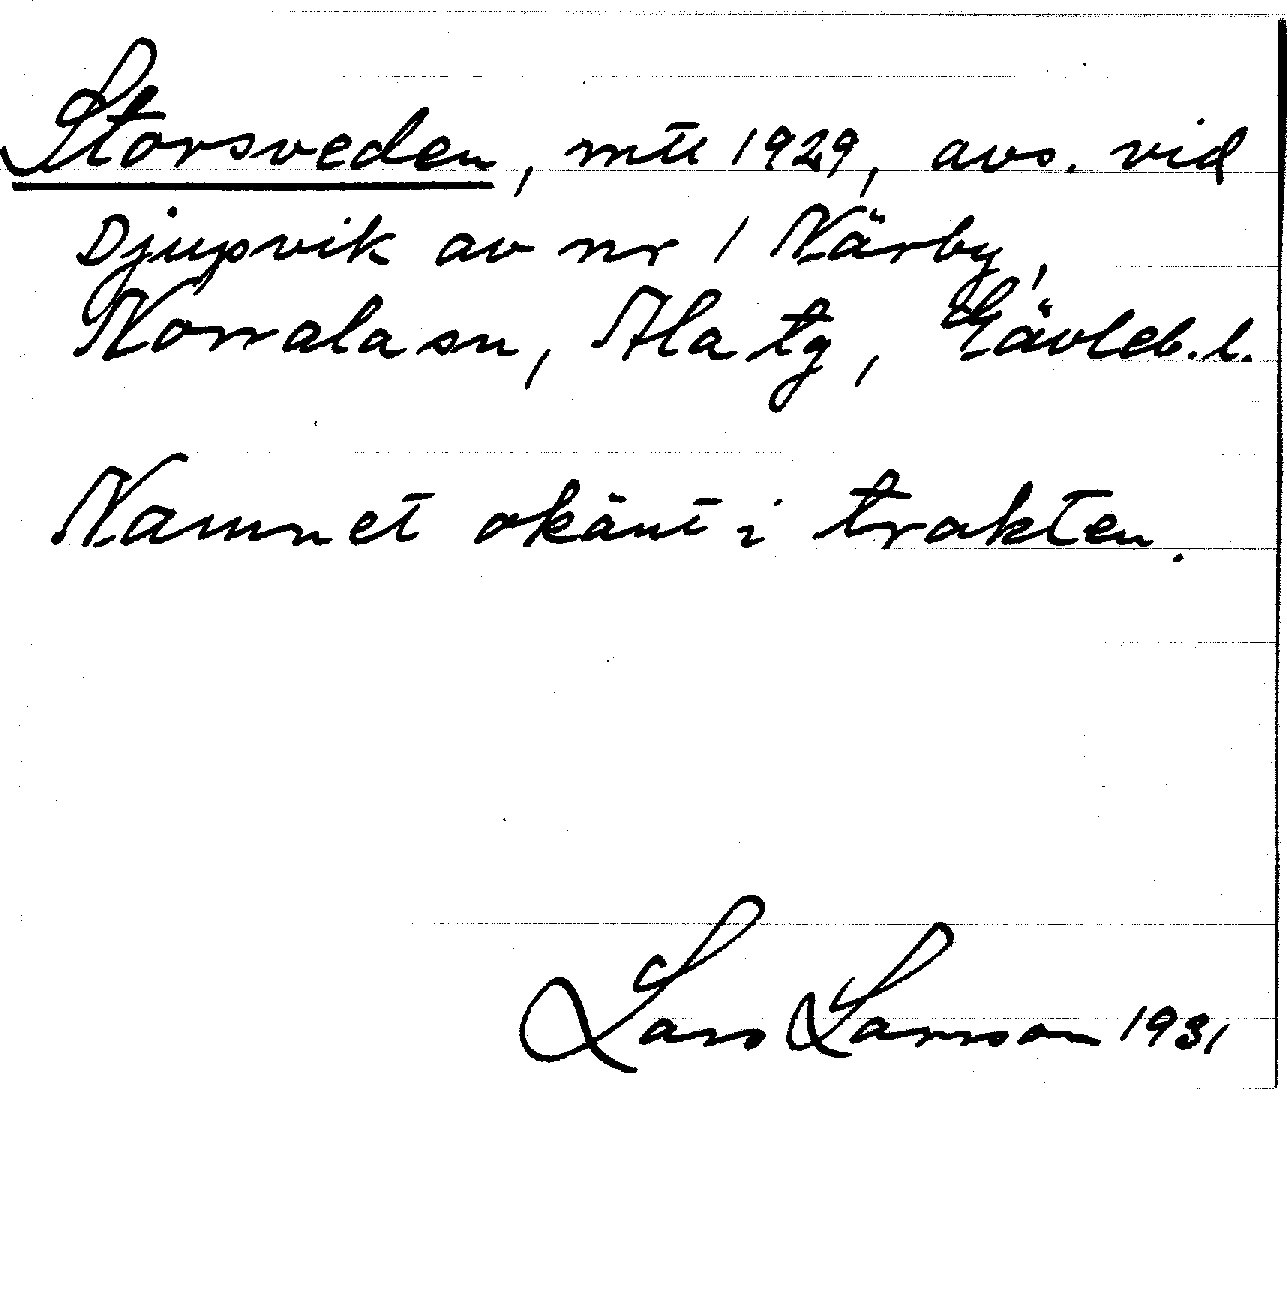 Storsveden, mtl 1929, avs. vid
Djupvik av nr 1 Närby,
Norrala sn, Ala tg, Gävleb. l.
Namnet okänt i trakten.
Lars Larsson 1931